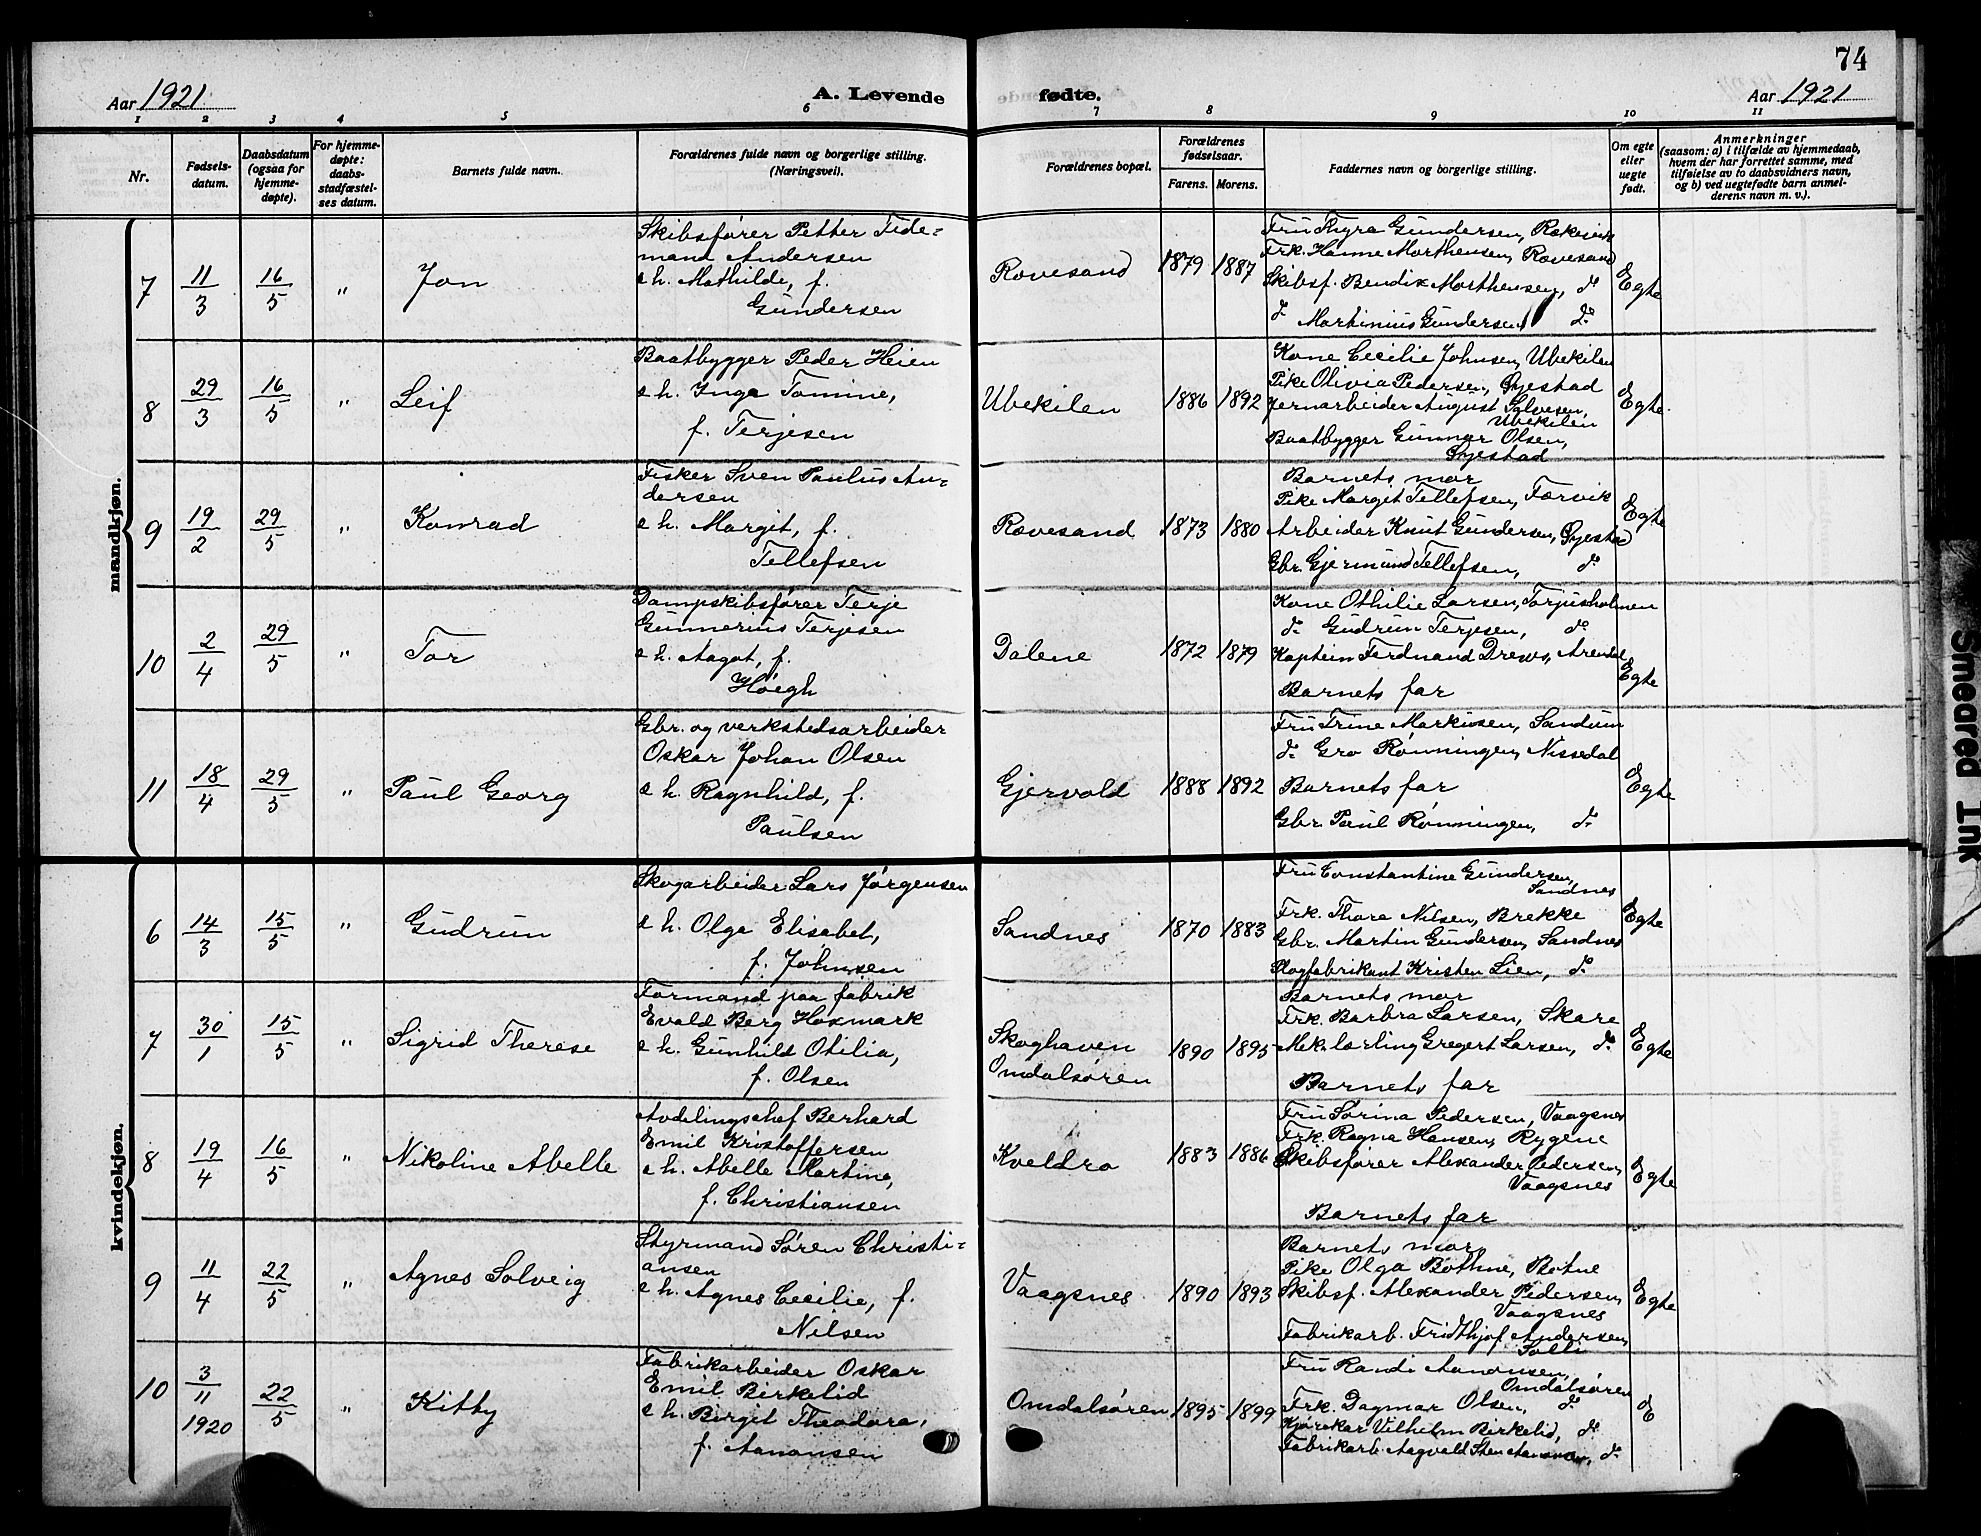 74
Aar 1921.
A. Levende
fødte.
Aar 1921
1 2 3 4 5 6 7 8 9 10 11
Nr.
Fødsels-
datum.
Daabsdatum
(ogsaa for
hjemme-
døpte).
For hjemme-
døpte:
daabs-
stadfæstel-
ses datum.
Barnets fulde navn.
Forældrenes fulde navn og borgerlige stilling.
(Næringsvei).
Forældrenes bopæl.
Forældrenes
fødselsaar.
Farens. Morens.
Faddernes navn og borgerlige stilling.
Om egte
eller
uegte
født.
Anmerkninger
(saasom: a) i tilfælde av hjemmedaab,
hvem der har forrettet samme, med
tilføielse av to daabsvidners navn,
og b) ved uegtefødte barn anmel-
derens navn m. v.).
mandkjøn.
7 11/3 16/5 " Jon
Skibsfører Petter Tide=
mand Andersen
e h. Mathilde, f.
Gundersen
Rovesand 1879 1887
Fru Thyra Gundersen,
Frk. Hanne Morthensen, Rovesand
Skibsf. Bendix Morthensen, do
do Martinius Gundersen do
Egte
8 29/3 16/5 " Leif
Baatbygger Peder Heien
e h. Inga Tomine,
f. Terjesen
Ubekilen 1886 1892
Kone Cecilie Johnsen, Ubekilen
Pike Olivia Pedersen, Øyestad
Jernarbeider August Salvesen,
Ubekilen
Baatbygger Gunnar Olsen,
Øyestad
Egte.
9 19/2 29/5 " Konrad
Fisker Sven Paulus An=
dersen
e h. Margit, f.
Tellefsen
Rovesand 1873 1880
Barnets mor
Pike Margit Tellefsen, Færvik
Arbeider Knut Gundersen, Øyestad
Gbr. Gjermund Tellefsen, do
Egte
10 2/4 29/5 " Tor
Dampskibsfører Terje
Gunnerius Terjesen
e h. Aagot, f.
Høegh
Dalene 1872 1879
Kone Othilie Larsen, Torjusholmen
do Gudrun Terjesen, do
Kaptein Ferdinand Drews, Arendal
Barnets far
Egte
11 18/4 29/5 " Paul Georg
Gbr. og verkstedsarbeider
Oskar Johan Olsen
e h. Ragnhild, f.
Paulsen
Gjervold 1888 1892
Fru Trine Markussen, Sandum
do Gro Rønningen, Nissedal
Barnets far
Gbr. Paul Rønningen, do
Egte
kvindekjøn.
6 14/3 15/5 " Gudrun
Skogarbeider Lars Jørgensen
e h. Olga Elisabet,
f. Johnsen
Sandnes 1870 1883
Fru Constantine Gundersen,
Sandnes
Frk. Thora Nilsen, Brekke
Gbr. Martin Gundersen, Sandnes
Plogfabrikant Kristen Lien, do
Egte
7 30/1 15/5 " Sigrid Therese
Formand paa fabrik
Evald Berg Hoxmark
e h. Gunhild Otilia,
f. Olsen
Skoghaven
Omdalsøren 1890 1895
Barnets mor
Frk. Barbra Larsen, Skare
Mek. lærling Gregert Larsen, do
Barnets far
Egte
8 19/4 16/5 " Nikoline Abelle
Avdelingschef Berhard
Emil Kristoffersen
e h. Abelle Martine,
f. Christiansen
Kveldro 1883 1886
Fru Sorina Pedersen, Vaagsnes
Frk. Ragna Hansen, Rygene
Skibsfører Alexander Pedersen,
Vaagsnes
Barnets far
Egte
9 11/4 22/5 " Agnes Solveig
Styrmand Søren Christi=
ansen
e h. Agnes Cecilie, f.
Nilsen
Vaagsnes 1890 1893
Barnets mor
Pike Olga Bothne, Botne
Skibsf. Alexander Pedersen,
Vaagsnes
Fabrikarb. Fridthjof Andersen,
Solli
Egte
10 3/11 1920 22/5 " Kitty
Fabrikarbeider Oskar
Emil Birkelid
e h. Birgit Theodora,
f. Aanonsen
Omdalsøren 1895 1899
Fru Randi Aanonsen,
Omdalsøren
Frk. Dagmar Olsen, do
Kjørekar Vilhelm Birkelid, do
Fabrikarb. Aagvald Aanonsen, do
E
Smeared Ink